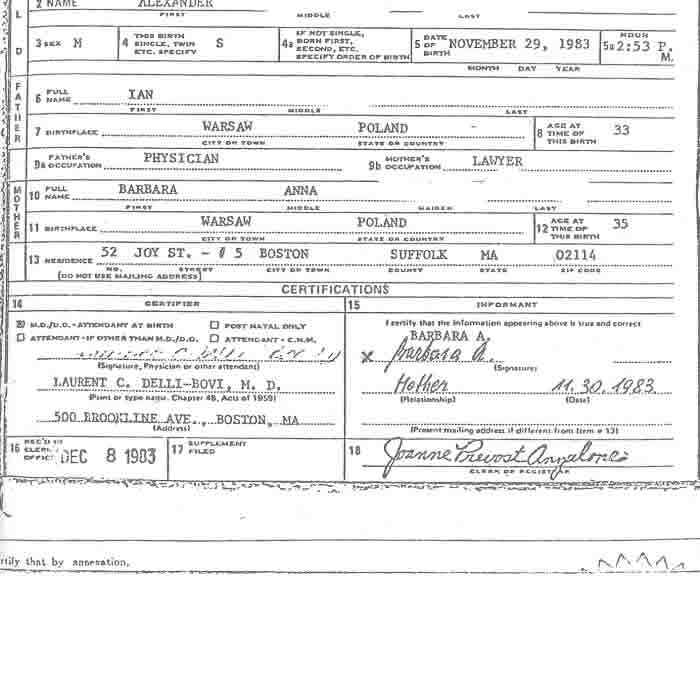 2 NAME ALEXANDER
FIRST MIDDLE LAST
L
D
3 SEX M 4 THIS BIRTH SINGLE, TWIN ETC. SPECIFY S 4a IF NOT SINGLE, BORN FIRST, SECOND, ETC. SPECIFY ORDER OF BIRTH 5 DATE OF BIRTH NOVEMBER 29, 1983 HOUR 5a 2:53 P. M.
MONTH DAY YEAR
FATHER
6 FULL NAME IAN
FIRST MIDDLE LAST
7 BIRTHPLACE WARSAW POLAND 8 AGE AT TIME OF THIS BIRTH 33
CITY OR TOWN STATE OR COUNTRY
9a FATHER'S OCCUPATION PHYSICIAN 9b MOTHER'S OCCUPATION LAWYER
MOTHER
10 FULL NAME BARBARA ANNA
FIRST MIDDLE MAIDEN LAST
11 BIRTHPLACE WARSAW POLAND 12 AGE AT TIME OF THIS BIRTH 35
CITY OR TOWN STATE OR COUNTRY
13 RESIDENCE 52 JOY ST. - # 5 BOSTON SUFFOLK MA 02114
NO. STREET CITY OR TOWN COUNTY STATE ZIP CODE
(DO NOT USE MAILING ADDRESS)
CERTIFICATIONS
14 CERTIFIER 15 INFORMANT
M.D./D.O. - ATTENDANT AT BIRTH POST NATAL ONLY
ATTENDANT - IF OTHER THAN M.D./D.O. ATTENDANT - C.N.M.
I certify that the information appearing above is true and correct
BARBARA A.
x Barbara A.
(Signature, Physician or other attendant) (Signature)
LAURENT C. DELLI-BOVI, M. D. Mother 11.30.1983
(Print or type name. Chapter 48, Acts of 1959) (Relationship) (Date)
500 BROOKLINE AVE., BOSTON, MA
(Address) (Present mailing address if different from Item # 13)
16 REC'D IN CLERK OFFICE DEC 8 1983 17 SUPPLEMENT FILED 18 Joanne Prevost Anzalone
CLERK OR REGISTRAR
rtify that by annexation,